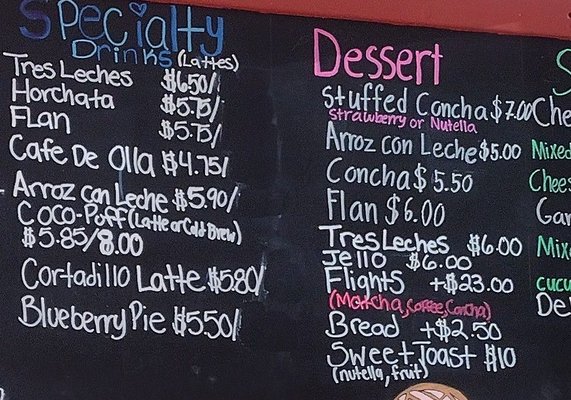 Specialty
Drinks (Lattes)
Tres Leches $6.50/
Horchata $5.75/
FLan $5.75/
Cafe De Olla $4.75/
Arroz con Leche $5.90/
Coco-Puff (Latte or Cold Brew)
$5.85/8.00
Cortadillo Latte $5.80/
Blueberry Pie $5.50/
Dessert
Stuffed Concha $7.00
Strawberry or Nutella
Arroz con Leche $5.00
Concha $5.50
Flan $6.00
Tres Leches $6.00
Jello $6.00
Flights +$23.00
(Matcha, Coffee, Concha)
Bread +$2.50
Sweet Toast $10
(nutella, fruit)
S
Che
Mixed
Chees
Gar
Mix
cucu
Del